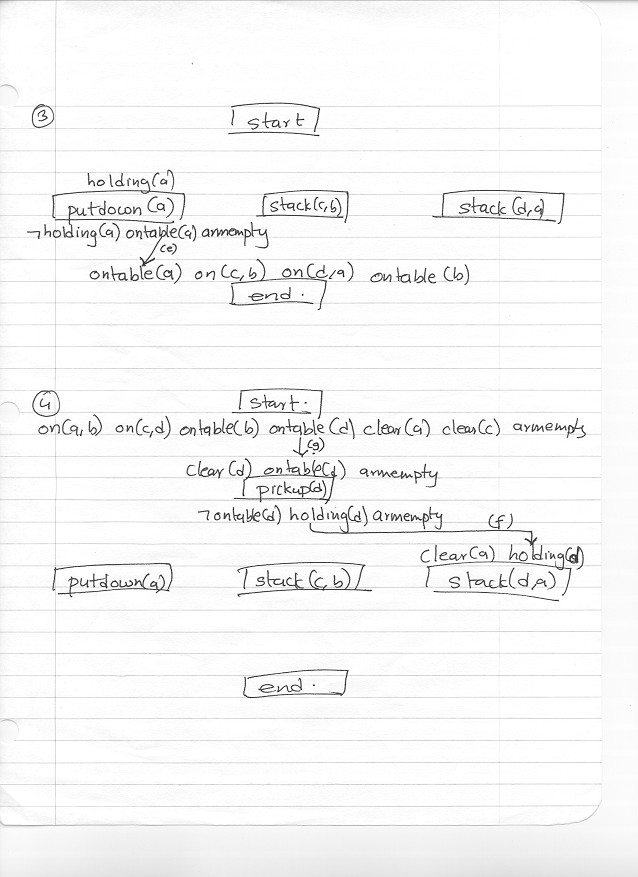 3
start
holding(a)
putdown(a) stack(c,b) stack(d,a)
¬holding(a) ontable(a) armempty
(e)
ontable(a) on(c,b) on(d,a) ontable(b)
end.
4
start.
on(a,b) on(c,d) ontable(b) ontable(d) clear(a) clear(c) armempty
(g)
clear(d) ontable(d) armempty
pickup(d)
¬ontable(d) holding(d) armempty (f)
clear(a) holding(d)
putdown(a) stack(c,b) stack(d,a)
end.